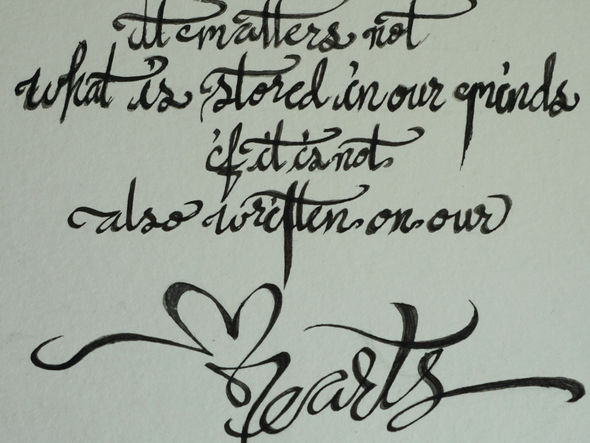 it matters not
what is stored in our minds
if it is not
also written on our
hearts